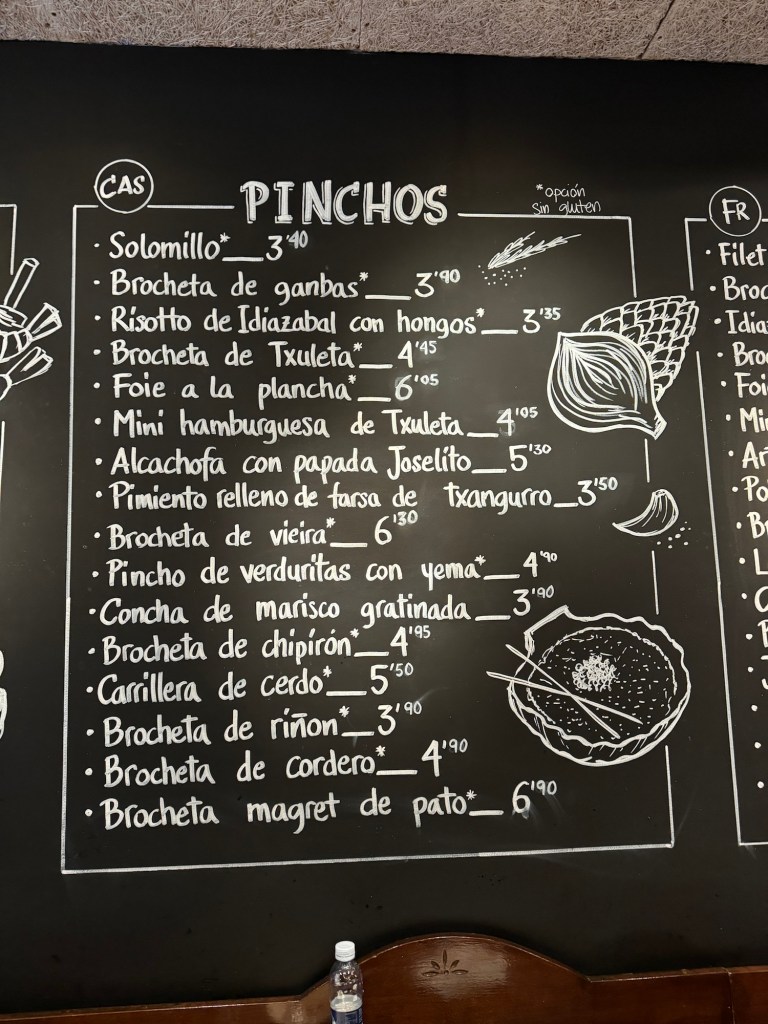 CAS
PINCHOS
*opción
sin gluten
· Solomillo*__3'40
· Brocheta de ganbas*__3'90
· Risotto de Idiazabal con hongos*__3'35
· Brocheta de Txuleta*__4'45
· Foie a la plancha*__6'05
· Mini hamburguesa de Txuleta__4'05
· Alcachofa con papada Joselito__5'30
· Pimiento relleno de farsa de txangurro__3'50
· Brocheta de vieira*__6'30
· Pincho de verduritas con yema*__4'90
· Concha de marisco gratinada__3'90
· Brocheta de chipirón*__4'95
· Carrillera de cerdo*__5'50
· Brocheta de riñon*__3'90
· Brocheta de cordero*__4'90
· Brocheta magret de pato*__6'90
FR
· Filet